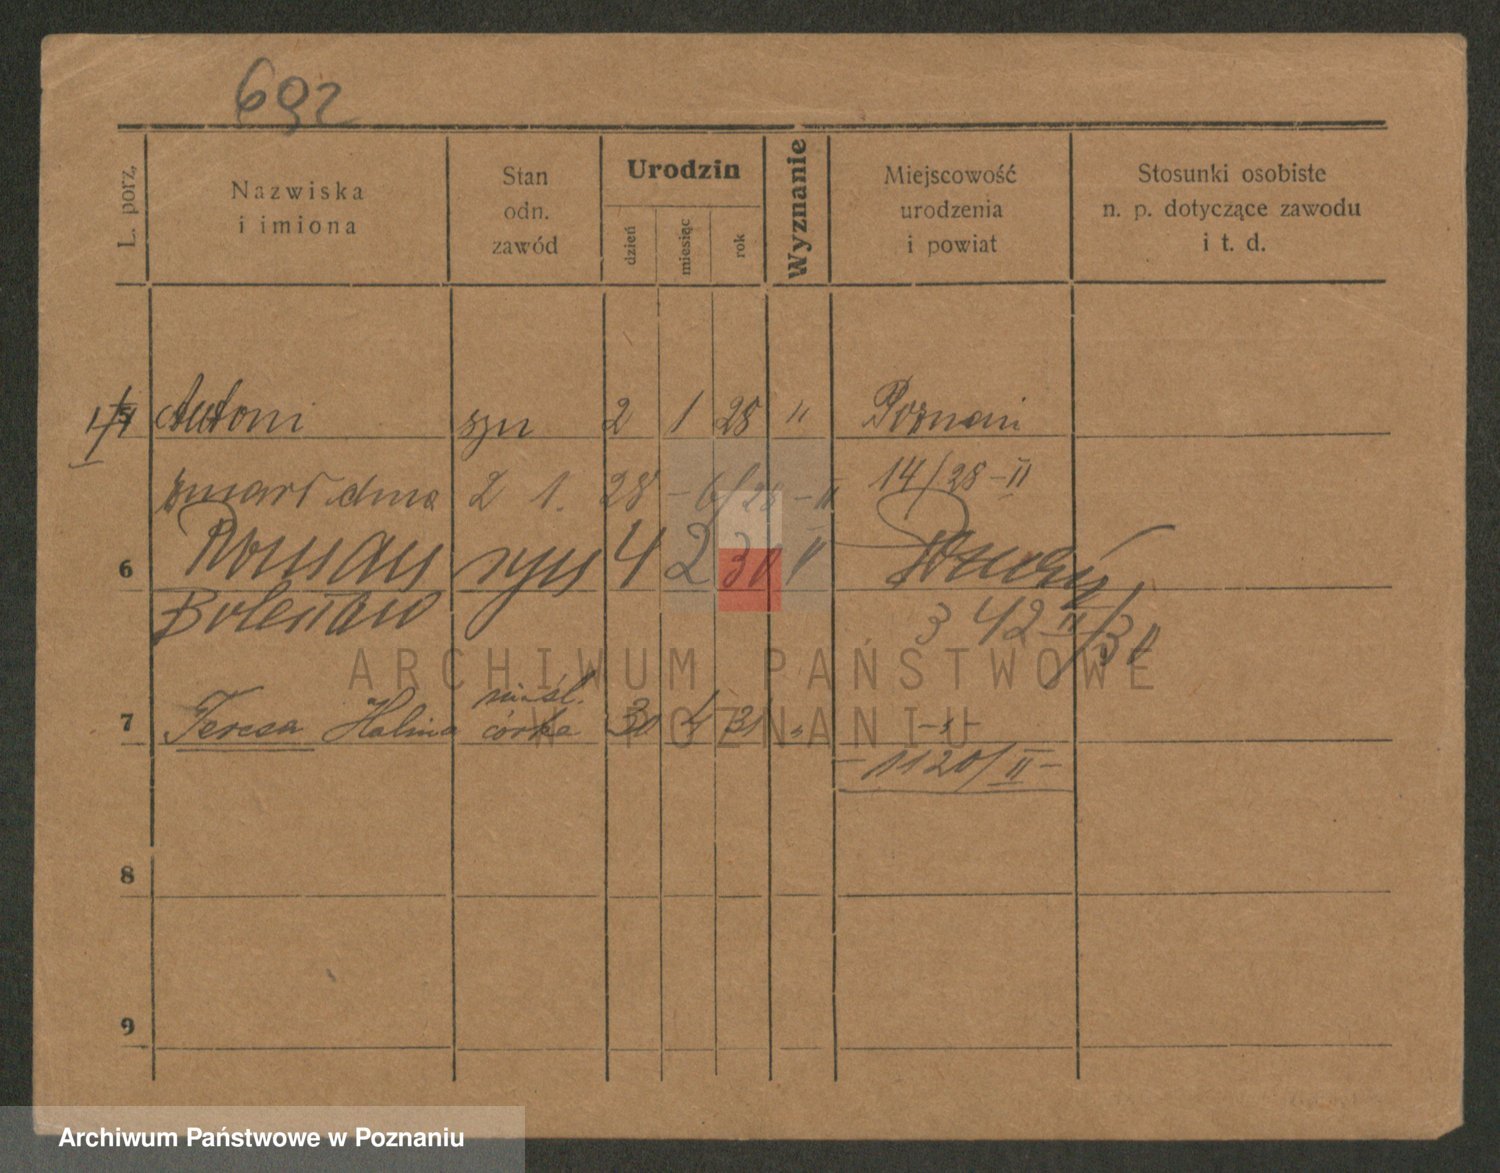 692
L. porz.
Nazwiska
i imiona
Stan
odn.
zawód
Urodzin
dzień
miesiąc
rok
Wyznanie
Miejscowość
urodzenia
i powiat
Stosunki osobiste
n. p. dotyczące zawodu
i t. d.
Antoni syn 2 1 28 " Poznań
zmarł dnia 2 1. 28 – 6/28 – II 14/28 – II
6 Roman syn 4 2 30 " Poznań
Bolesław 3 42 II/30
nieśl.
7 Teresa Halina córka 30 4 31 " - " -
– 1120/II –
8
9
ARCHIWUM PAŃSTWOWE
W POZNANIU
Archiwum Państwowe w Poznaniu